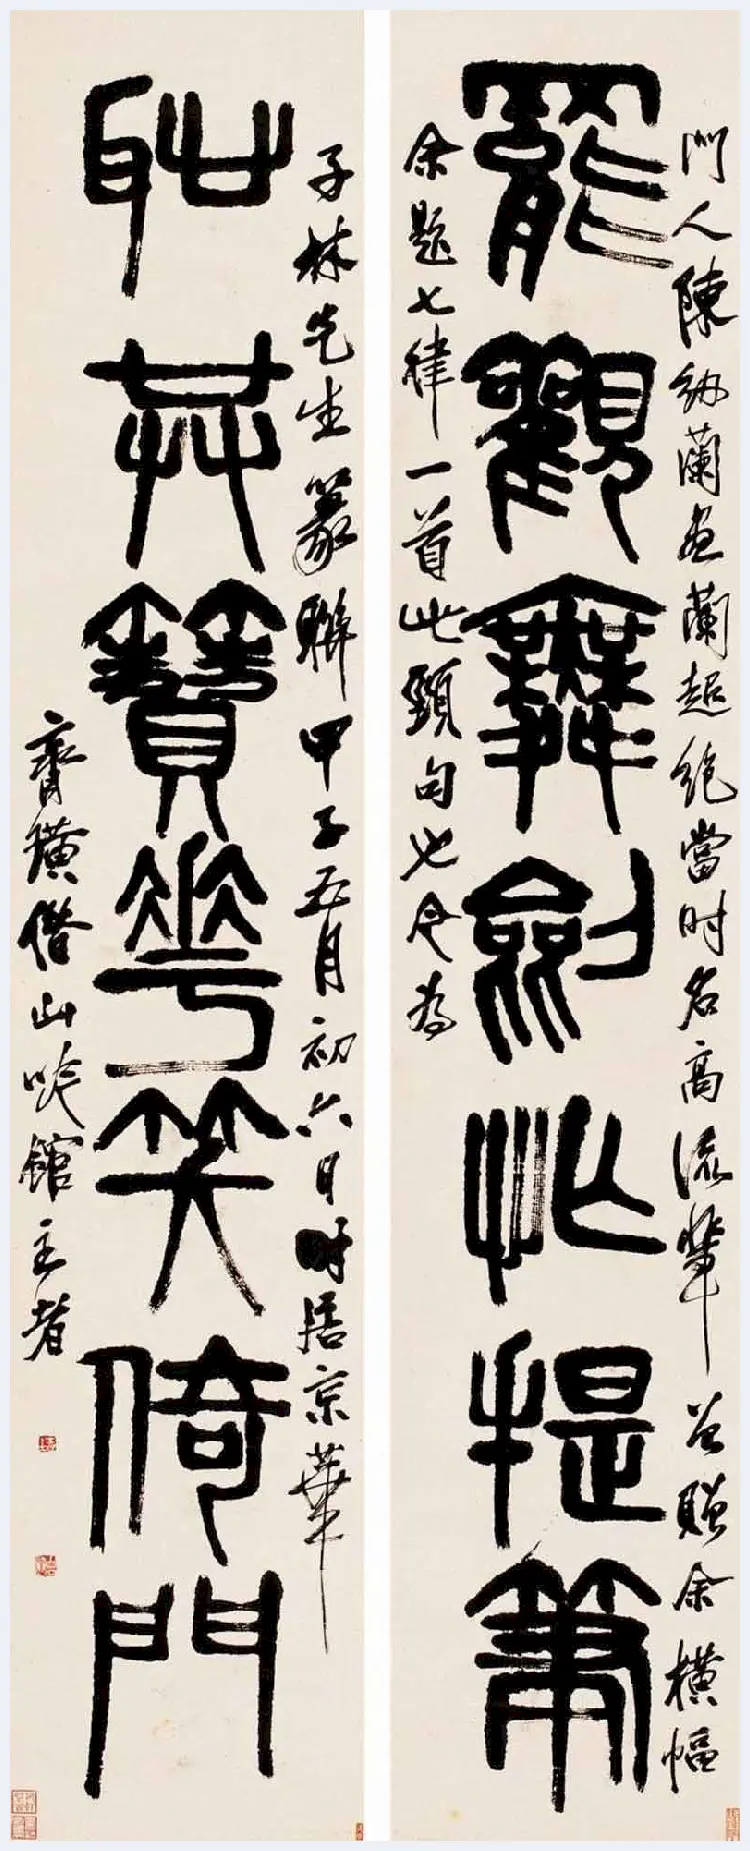 罷觀舞劍忙提筆
耻共簪花笑倚門
門人陳紉蘭畫蘭超絕當時名高流輩曾贈余橫幅
余題七律一首此頸句也今為
子林先生篆聯甲子五月初六日時居京華
齊璜借山吟館主者